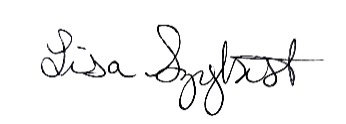 Lisa Szybist